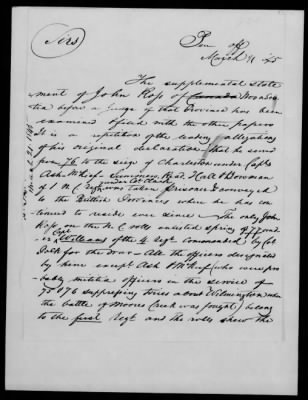 Pen off
March 31 45
(Sirs)
The supplemental state
ment of John Ross of Canada Nova Sco
tia before a Judge of that Province has been
examined & filed with the other papers
It is a repetition of the leading allegations
of his original declaration - that he served
from 76 to the siege of Charleston under Capts
Ash, Rhief, Summers, Read, Hall & Bowman
of 1 N C Regt was taken prisoner & conveyed
to the British Provinces where he has con
tinued to reside ever since The only John
Ross on the N C rolls enlisted spring of 77 und
er Capt Williams of the 4 Regt commanded by Col
for the War - All the officers designated
by him except Ash & Rhief (who were pro
bably militia officers in the service of
75 & 76 suppressing tories about Wilmington when
the battle of Moores Creek was fought) belong
to the first Regt and the rolls shew the